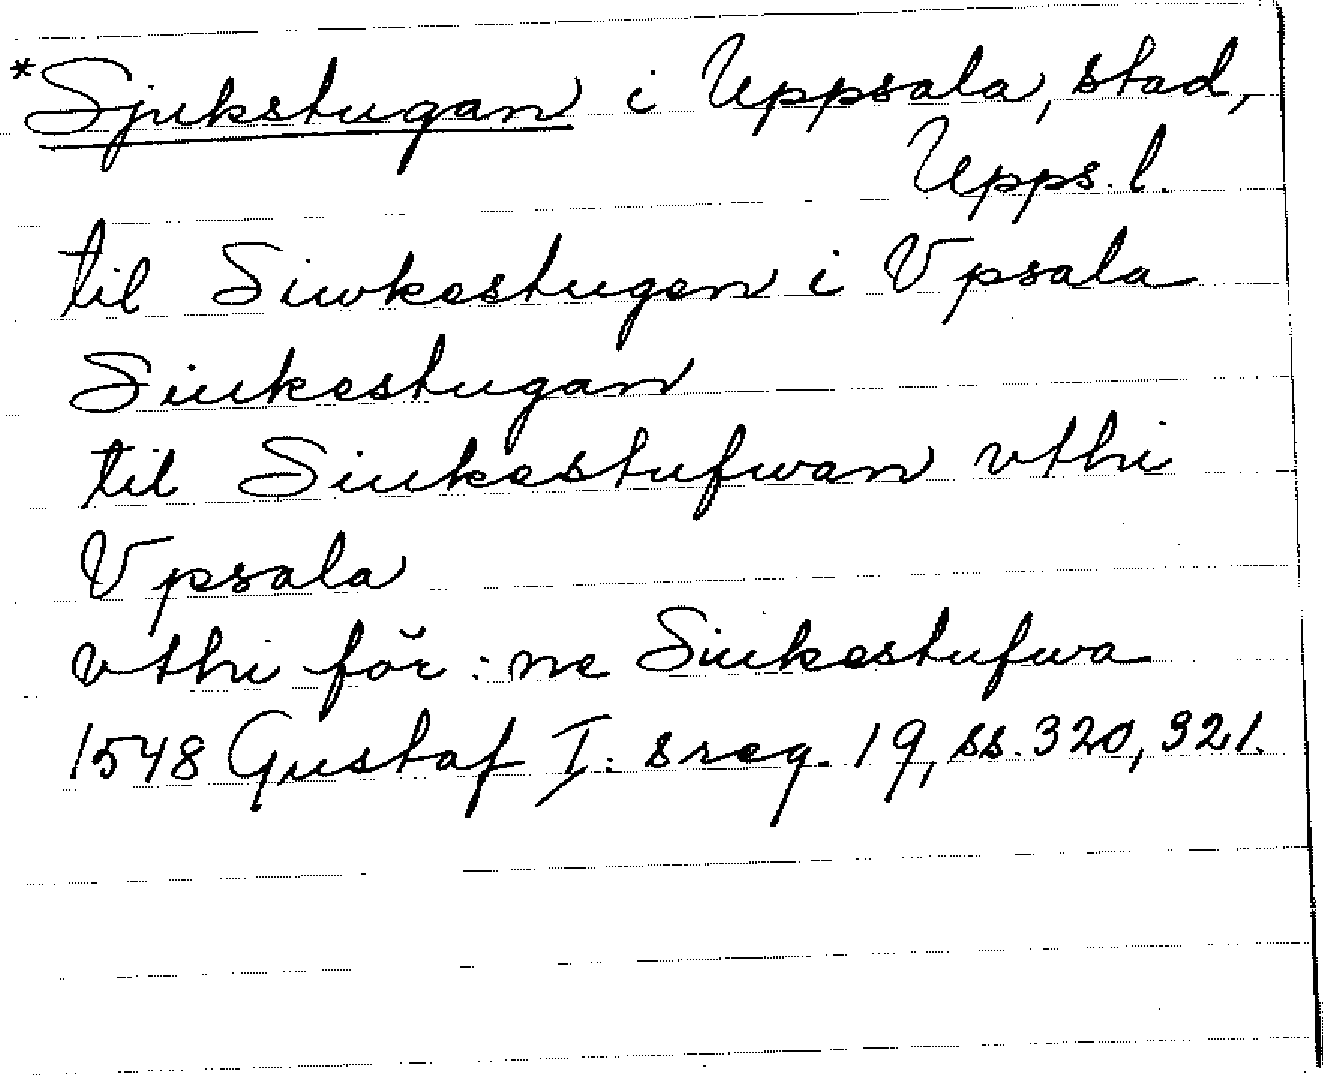 *Sjukstugan i Uppsala, stad,
Upps. l.
til Siwkestugen i Vpsala
Siukestugan
til Siukestufwan vthi
Vpsala
vthi för:ne Siukestufwa
1548 Gustaf I:s reg. 19, ss. 320, 321.